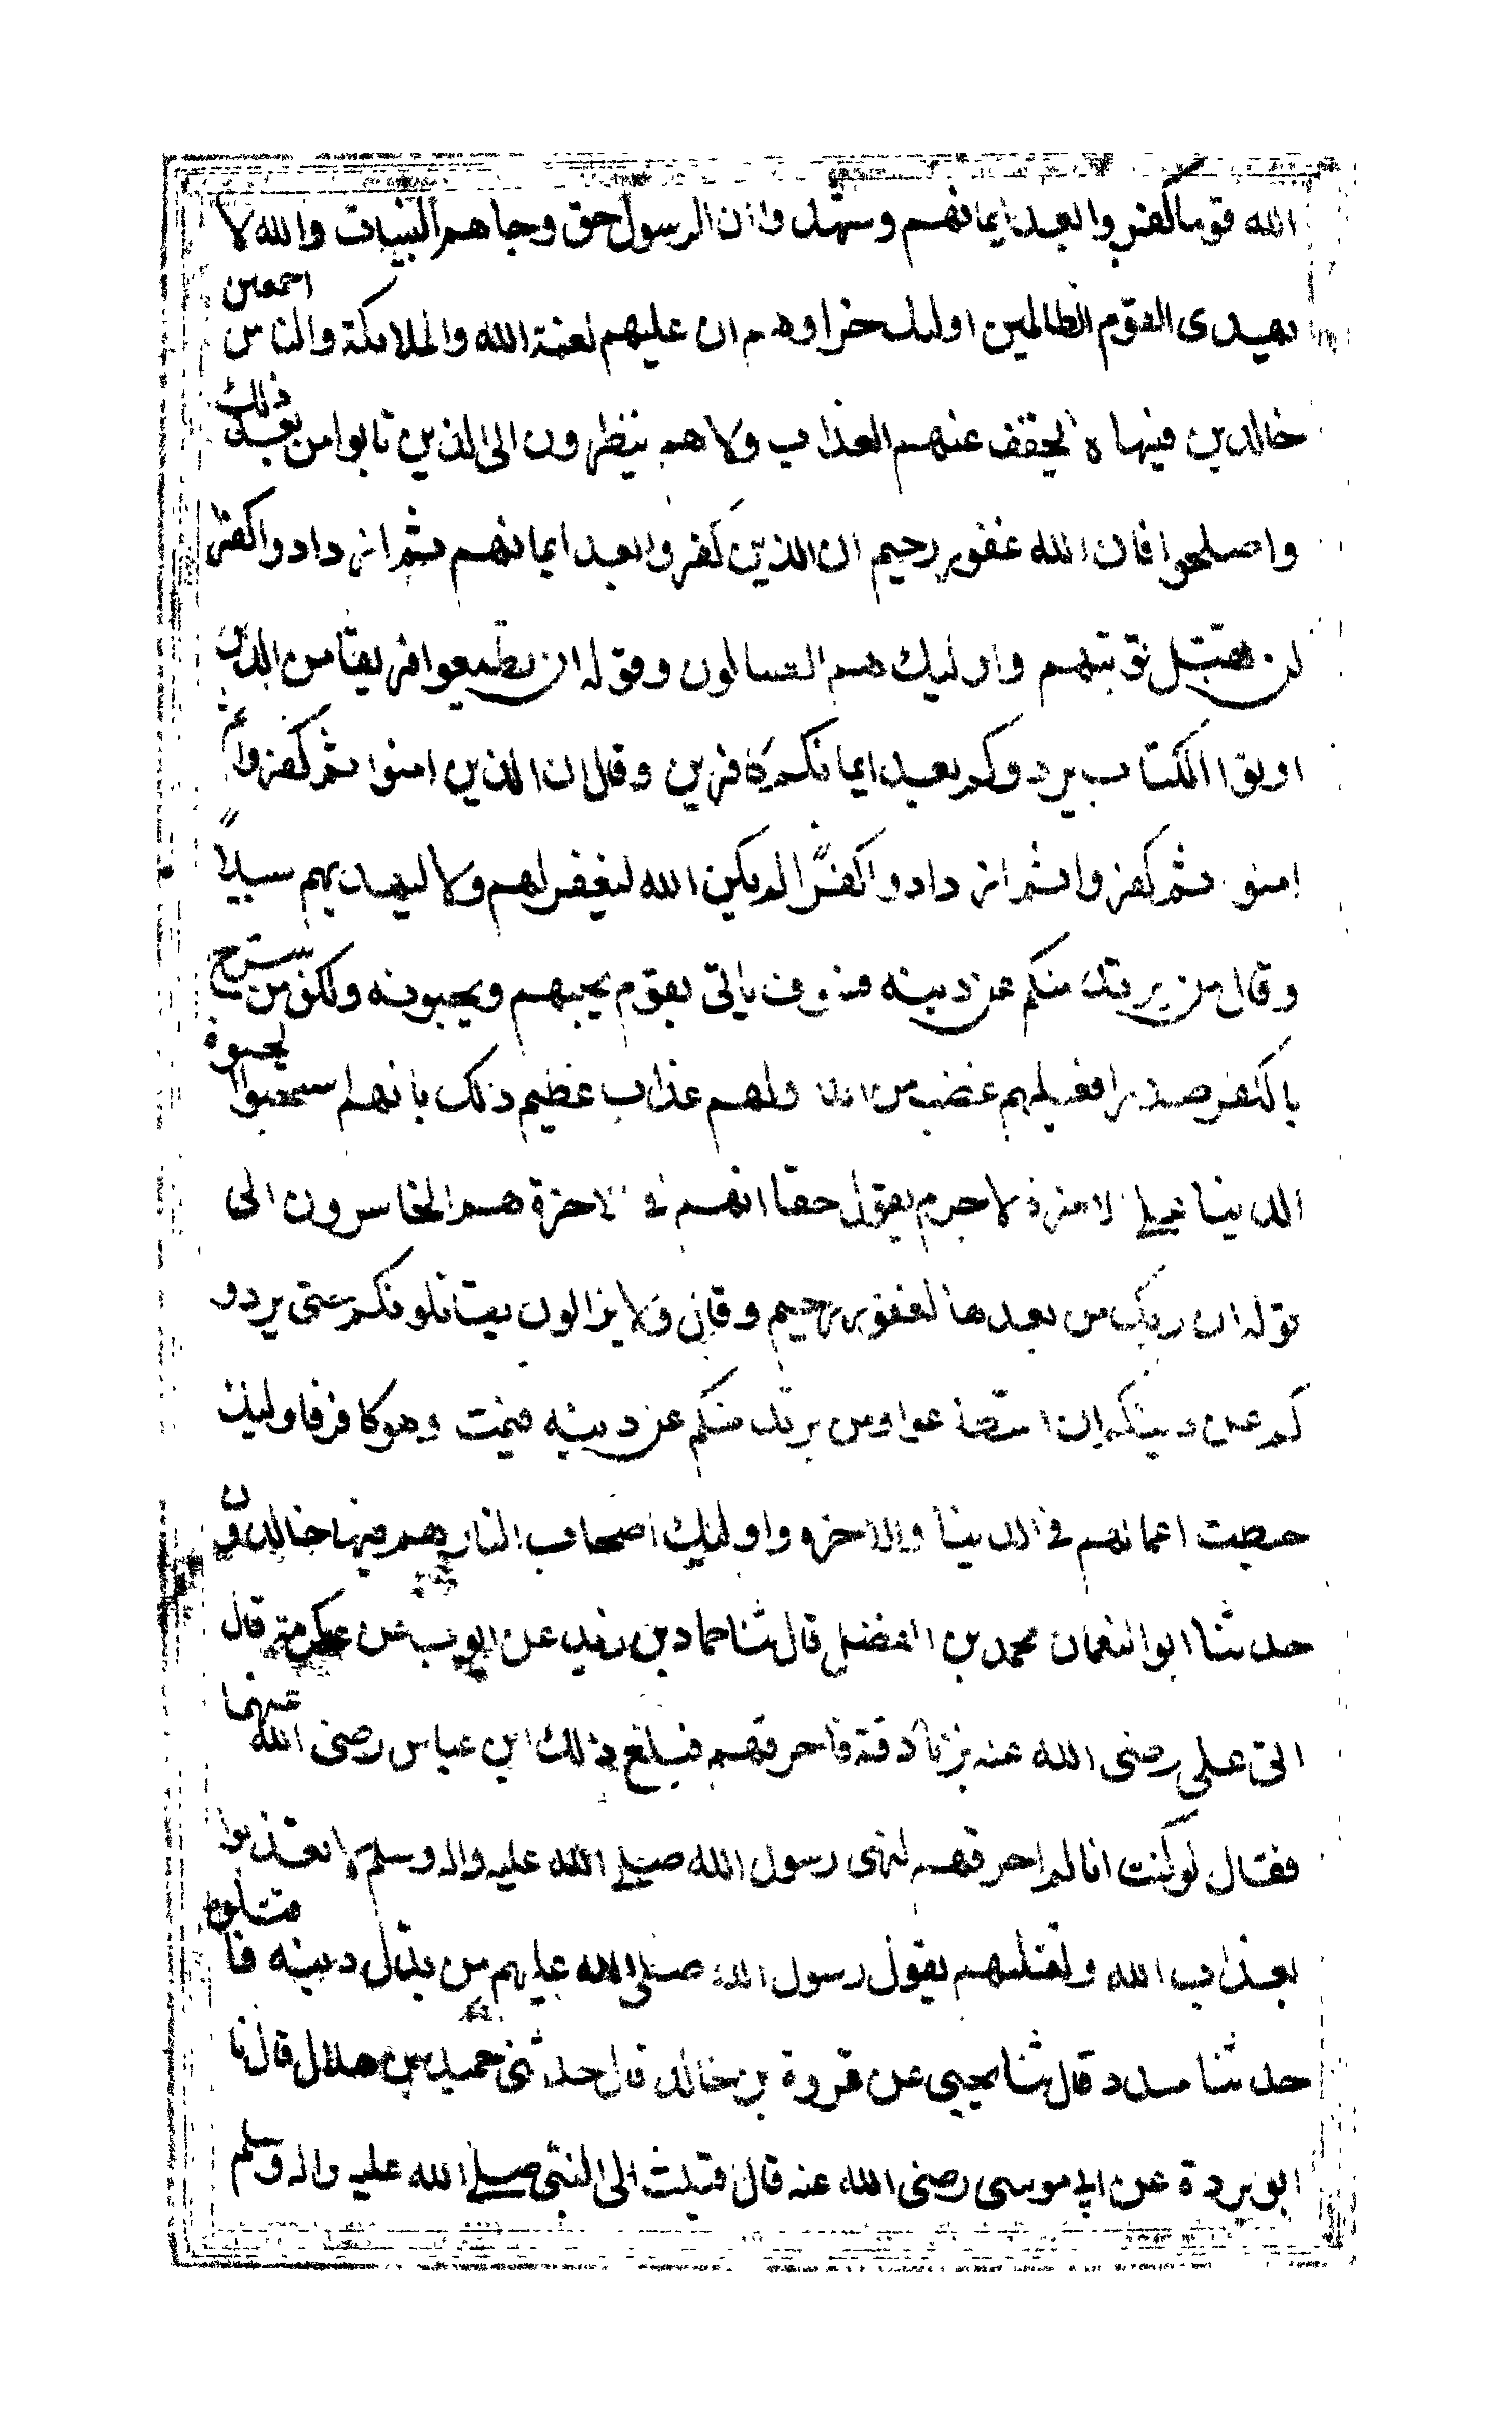 الله قوما كفروا بعد ايمانهم وشهدوا ان الرسول حق وجاهم البينات والله لا
يهدى القوم الظالمين اوليك جزاوهم ان عليهم لعنة الله والملايكة والناس اجمعين
خالدين فيها لا يخفف عنهم العذاب ولا هم ينظرون الى الذين تابوا من بعد ذلك
واصلحوا فان الله غفور رحيم ان الذين كفروا بعد ايمانهم ثم ازدادوا كفرا
لن تقبل توبتهم واوليك هم الضالون وقوله ان تطيعوا فريقا من الذين
اوتوا الكتاب يردوكم بعد ايمانكم كافرين وقال ان الذين امنوا ثم كفروا ثم
امنوا ثم كفروا ثم ازدادوا كفرًا لم يكن الله ليغفر لهم ولا ليهديهم سبيلاً
وقال من يرتد منكم عن دينه فسوف ياتى بقوم يحبهم ويحبونه ولكن من شرح
بالكفر صدرا فعليهم غضب من الله ولهم عذاب عظيم ذلك بانهم استحبوا الحيوة
الدينا على الاخرة لا جرم يقول حقا انهم فى الاخرة هم الخاسرون الى
قوله ان ربك من بعدها لغفور رحيم وقال ولا يزالون يقاتلونكم حتى يردو
كم عن دينكم ان استطاعوا ومن يرتد منكم عن دينه فيمت وهو كافر فاوليك
حبطت اعمالهم فى الدينا والاخره واوليك اصحاب النار هم فيها خالدون
حدثنا ابو النعمان محمد بن الفضل قال ثنا حماد بن زيد عن ايوب عن عكرمة قال
اتى على رضى الله عنه بزنادقة فاحرقهم فبلغ ذلك ابن عباس رضى الله عنهما
فقال لو كنت انا لم احرقهم لنهى رسول الله صلى الله عليه واله وسلم لا تعذبوا
بعذاب الله ولقتلتهم يقول رسول الله صلى الله عليهم من بدل دينه فاقتلوه
حدثنا مسدد قال ثنا يحيى عن قروة بن خالد قال حدثنى حميد بن هلال قال نا
ابو بردة عن ابى موسى رضى الله عنه قال قبلت الى النبى صلى الله عليه واله وسلم